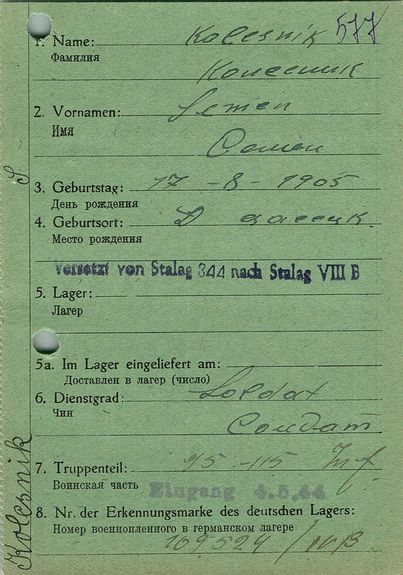 577
1. Name: Kolesnik
Фамилия
Колесник
2. Vornamen: Semen
Имя
Семен
3. Geburtstag: 17 - 8 - 1905
День рождения
4. Geburtsort: D
Место рождения
Versetzt von Stalag 344 nach Stalag VIII B
5. Lager:
Лагер
5a. Im Lager eingeliefert am:
Доставлен в лагер (число)
6. Dienstgrad: Soldat
Чин
Солдат
7. Truppenteil: 115 Inf
Воинская часть
Eingang 4.5.44
8. Nr. der Erkennungsmarke des deutschen Lagers:
Номер военнопленного в германском лагере
109524
Kolesnik S